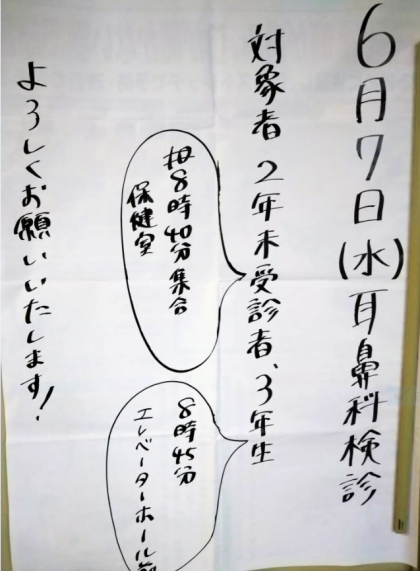 6月7日(水)耳鼻科検診
対象者 2年未受診者、3年生
8時40分集合
保健室
8時45分
エレベーターホール前
よろしくお願いいたします!